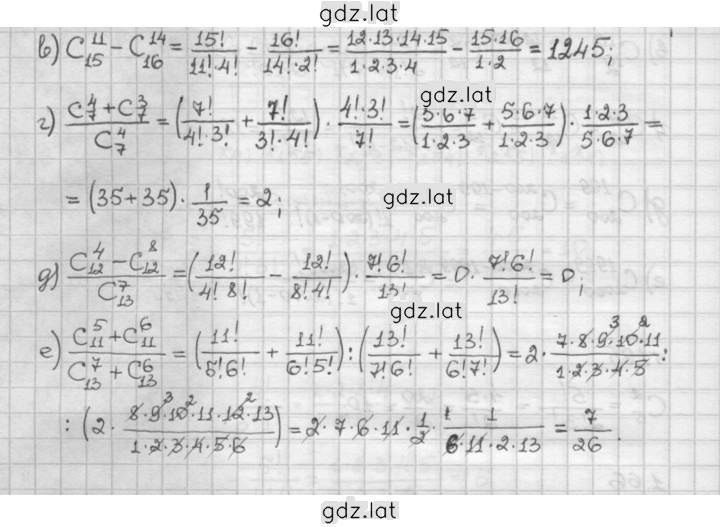 gdz.lat
в) C₁₅¹¹ − C₁₆¹⁴ = 15!/(11!·4!) − 16!/(14!·2!) = (12·13·14·15)/(1·2·3·4) − (15·16)/(1·2) = 1245;
gdz.lat
г) (C₇⁴ + C₇³)/C₇⁴ = (7!/(4!·3!) + 7!/(3!·4!)) · (4!·3!)/7! = ((5·6·7)/(1·2·3) + (5·6·7)/(1·2·3)) · (1·2·3)/(5·6·7) =
= (35+35) · 1/35 = 2;
gdz.lat
д) (C₁₂⁴ − C₁₂⁸)/C₁₃⁷ = (12!/(4! 8!) − 12!/(8! 4!)) · (7! 6!)/13! = 0 · (7! 6!)/13! = 0;
gdz.lat
е) (C₁₁⁵ + C₁₁⁶)/(C₁₃⁷ + C₁₃⁶) = (11!/(5! 6!) + 11!/(6! 5!)) : (13!/(7! 6!) + 13!/(6! 7!)) = 2 · (7·8·9³·10²·11)/(1·2·3·4·5) :
: (2 · (8·9³·10²·11·12²·13)/(1·2·3·4·5·6)) = 2·7·6·11 · 1/2 · 1/(6·11·2·13) = 7/26.
gdz.lat